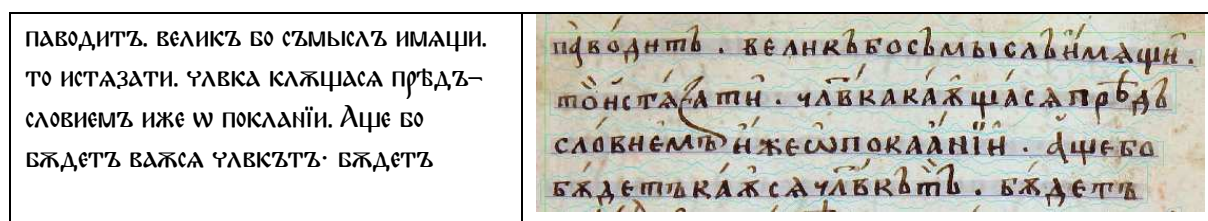 паводитъ. великъ бо съмыслъ имѧщи.
то истѧзати. члвка клѫщасѧ прѣдъ¬
словиемъ иже ѡ покланїи. Аще бо
бѫдетъ ваѫсѧ члвкътъ· бѫдетъ
паво́дитъ . великъбосъмыслъи҆мѧщи҆ .
то̀и҆стѧ́зати҆ . чл҃вкакаѫ҆щасѧпрѣдъ
сло́виемъи҆жеѡ҆покаа҆нїи҆ . а҆щебо
бѫдетъкаѫ҆сѧчл҃вкътъ . бѫдетъ